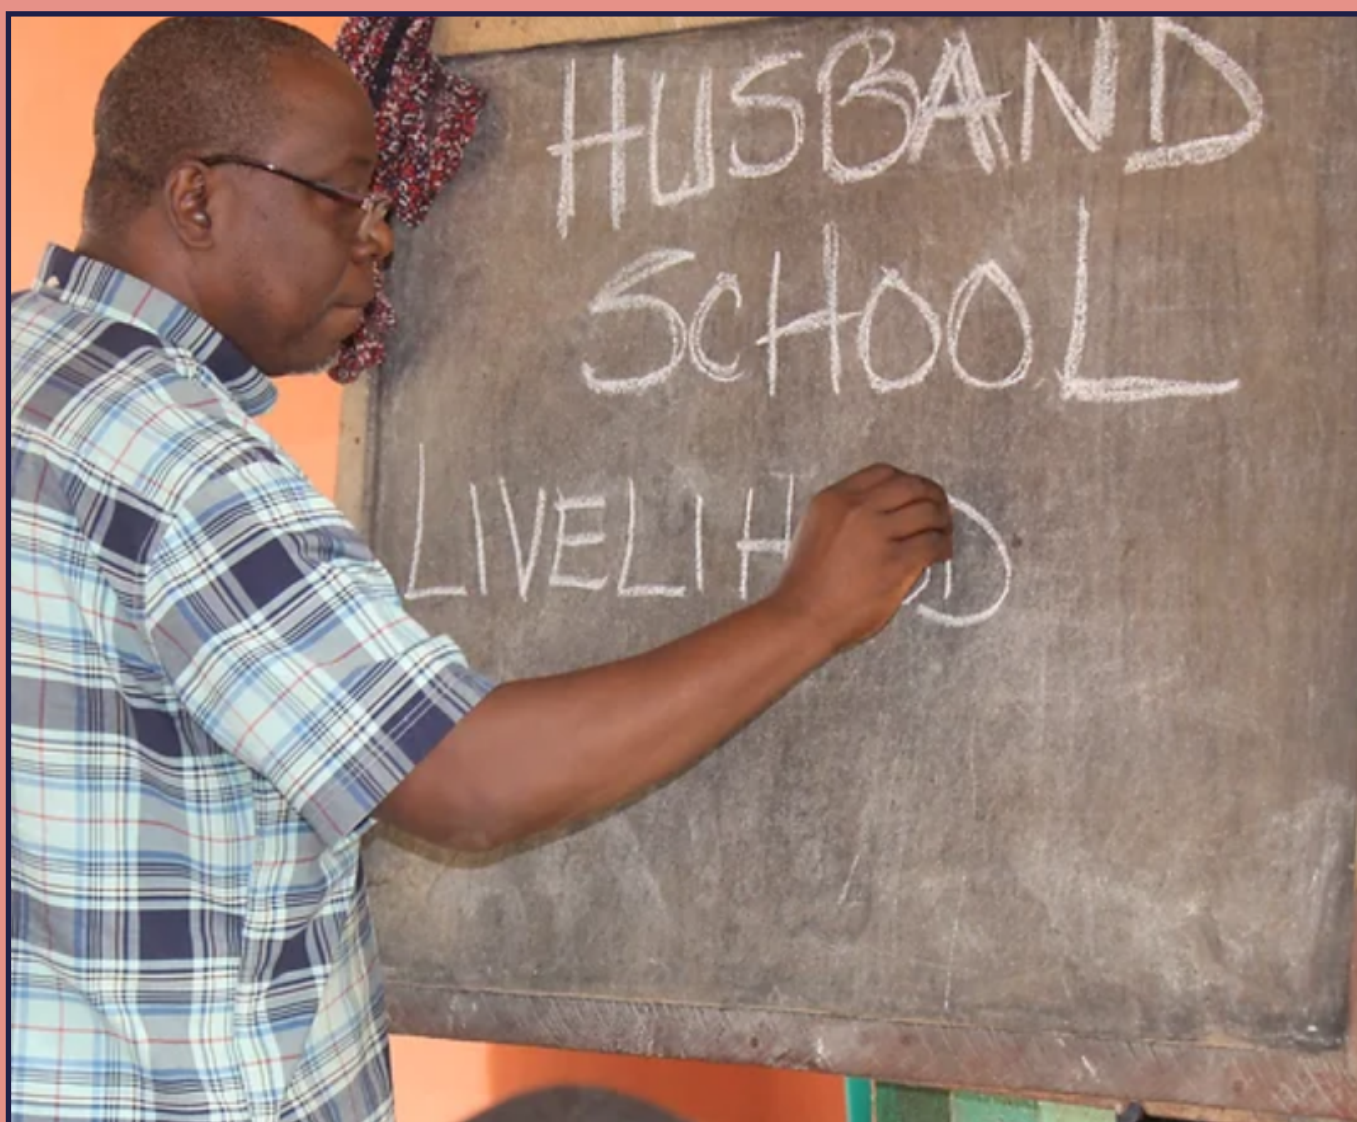 HUSBAND
SCHOOL
LIVELIHOOD